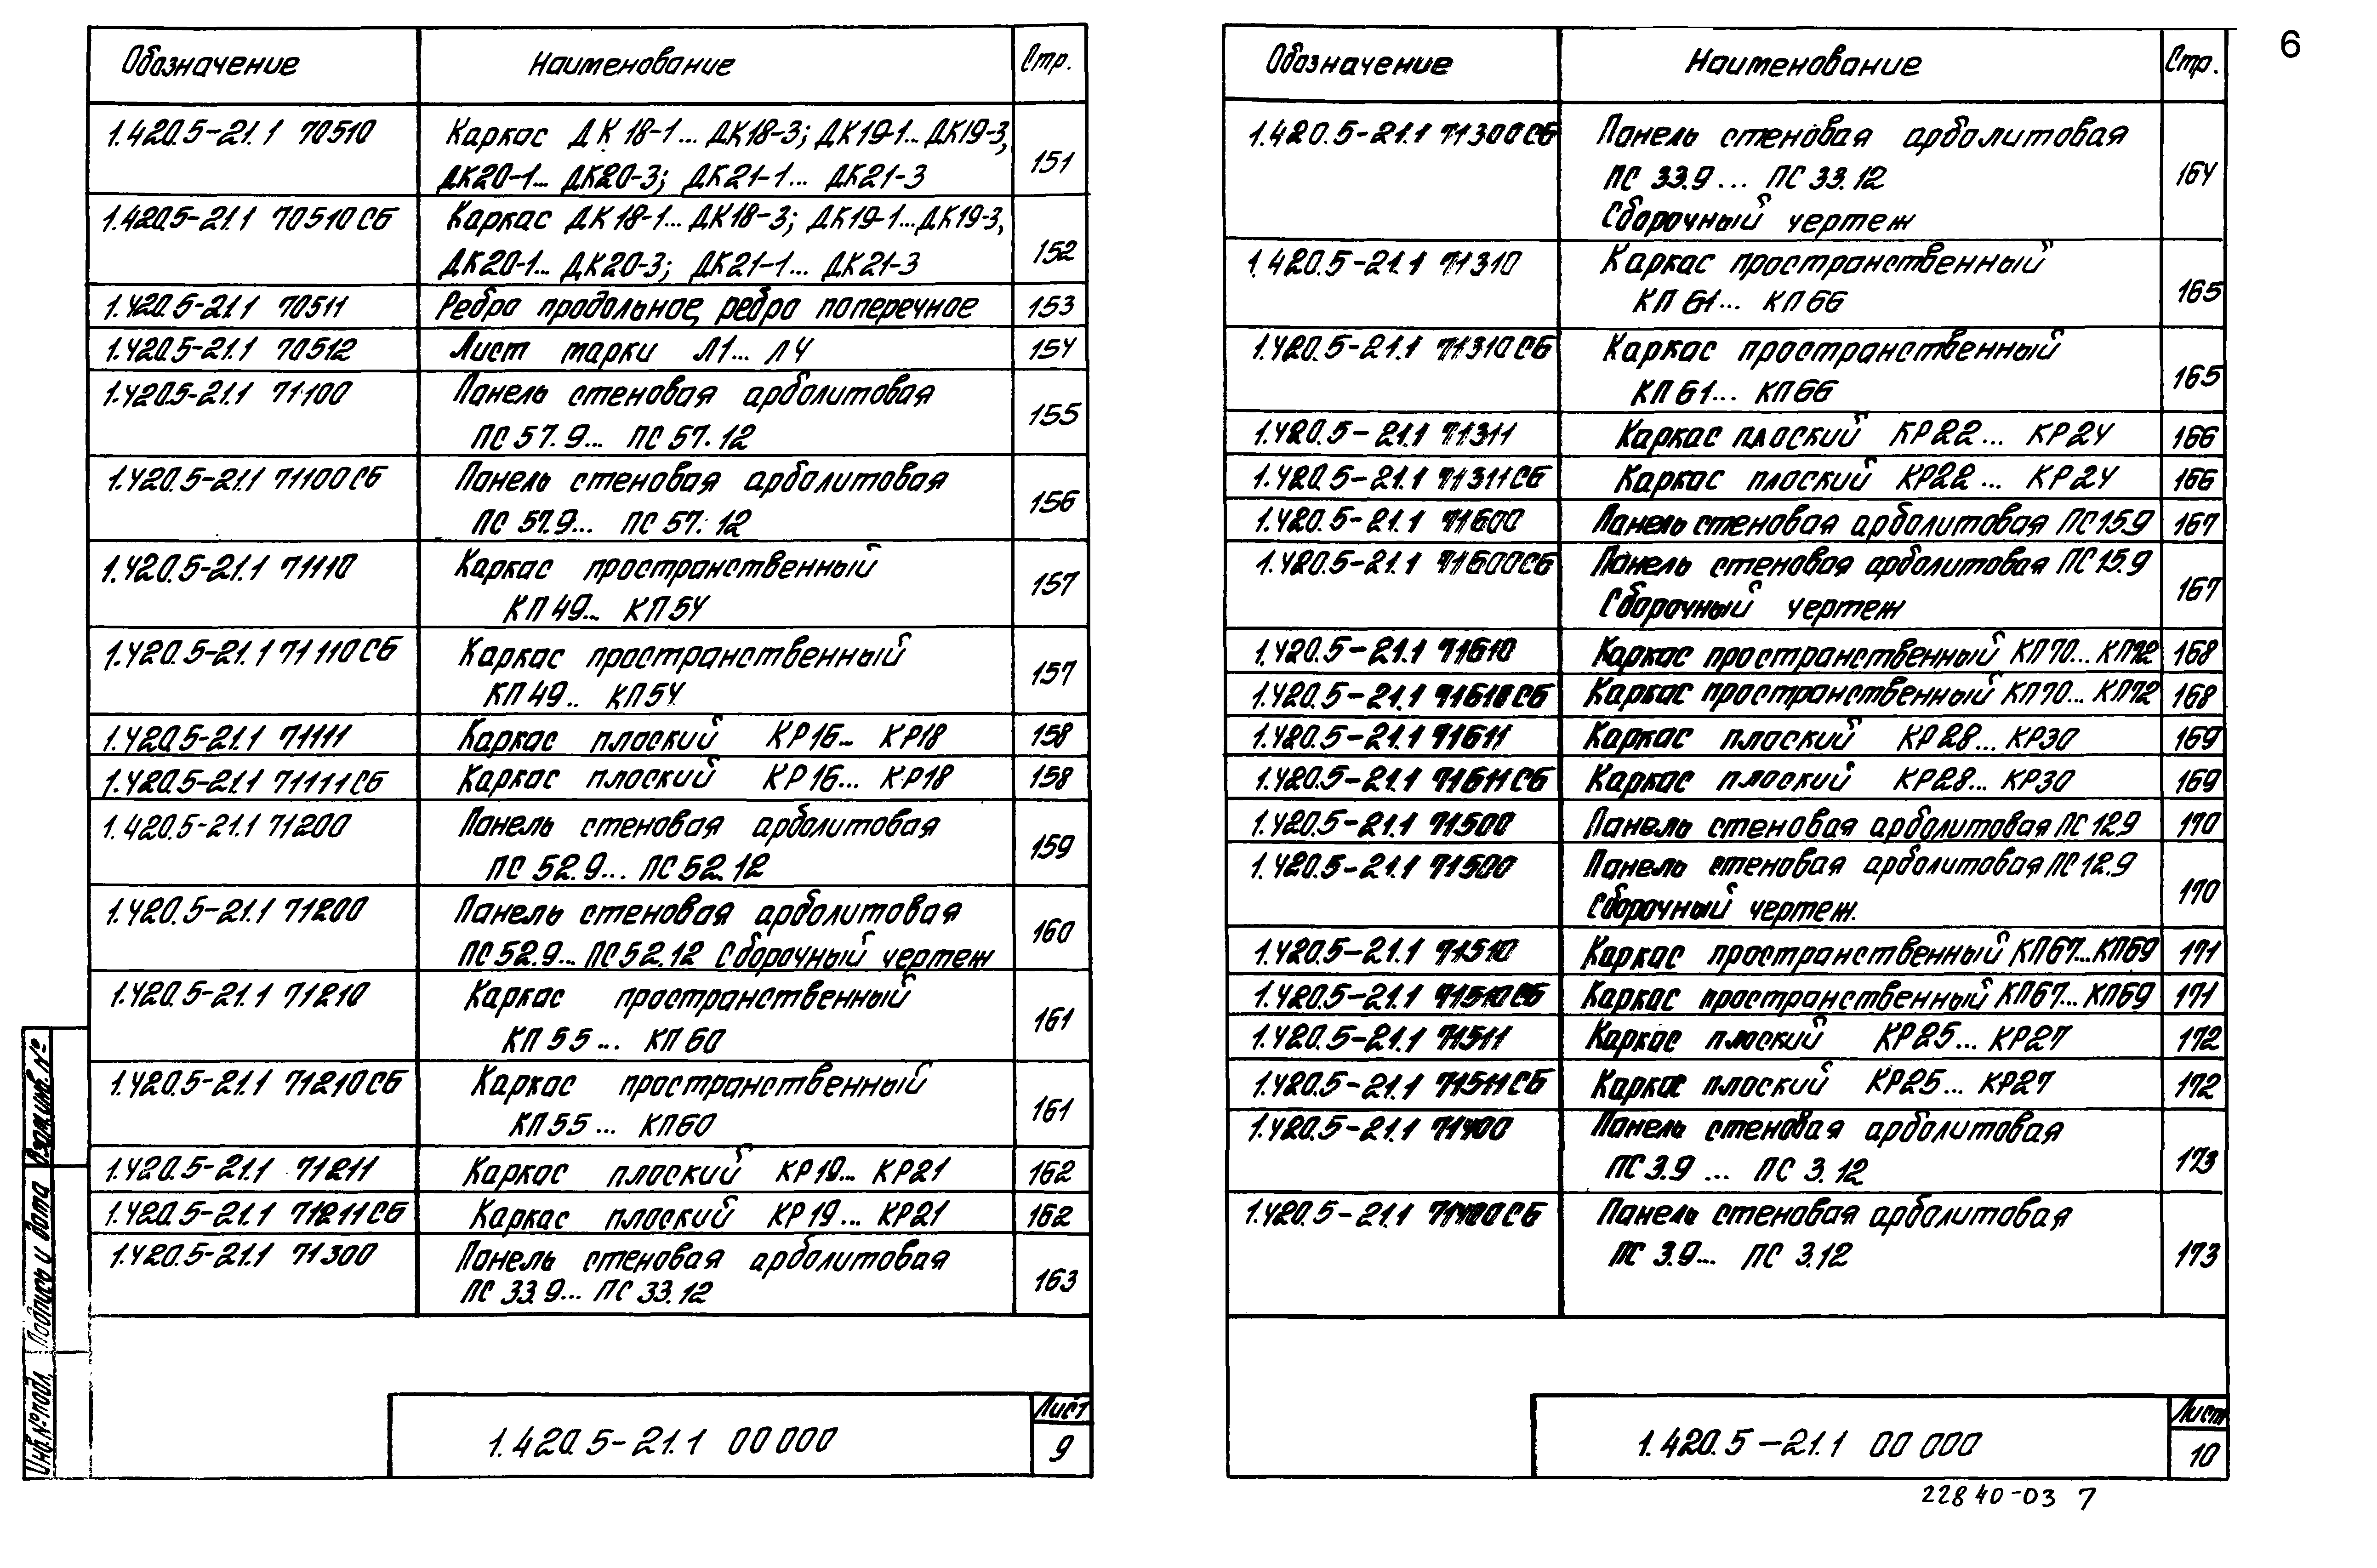 6
Обозначение Наименование Стр.
1.420.5-21.1 70510 Каркас ДК18-1... ДК18-3; ДК19-1... ДК19-3,
ДК20-1... ДК20-3; ДК21-1... ДК21-3 151
1.420.5-21.1 70510СБ Каркас ДК18-1... ДК18-3; ДК19-1... ДК19-3,
ДК20-1... ДК20-3; ДК21-1... ДК21-3 152
1.420.5-21.1 70511 Ребро продольное, ребро поперечное 153
1.420.5-21.1 70512 Лист марки Л1... Л4 154
1.420.5-21.1 71100 Панель стеновая арболитовая
ПС 57.9... ПС 57.12 155
1.420.5-21.1 71100СБ Панель стеновая арболитовая
ПС 57.9... ПС 57.12 156
1.420.5-21.1 71110 Каркас пространственный
КП49... КП54 157
1.420.5-21.1 71110СБ Каркас пространственный
КП49.. КП54 157
1.420.5-21.1 71111 Каркас плоский КР16... КР18 158
1.420.5-21.1 71111СБ Каркас плоский КР16... КР18 158
1.420.5-21.1 71200 Панель стеновая арболитовая
ПС 52.9... ПС 52.12 159
1.420.5-21.1 71200 Панель стеновая арболитовая
ПС 52.9... ПС 52.12 Сборочный чертеж 160
1.420.5-21.1 71210 Каркас пространственный
КП55... КП60 161
1.420.5-21.1 71210СБ Каркас пространственный
КП55... КП60 161
1.420.5-21.1 71211 Каркас плоский КР19... КР21 162
1.420.5-21.1 71211СБ Каркас плоский КР19... КР21 162
1.420.5-21.1 71300 Панель стеновая арболитовая
ПС 33.9... ПС 33.12 163
Взам.инв.№
Подпись и дата
Инв.№подл.
1.420.5-21.1 00 000
Лист
9
Обозначение Наименование Стр.
1.420.5-21.1 71300СБ Панель стеновая арболитовая
ПС 33.9... ПС 33.12 164
Сборочный чертеж
1.420.5-21.1 71310 Каркас пространственный
КП61... КП66 165
1.420.5-21.1 71310СБ Каркас пространственный
КП61... КП66 165
1.420.5-21.1 71311 Каркас плоский КР22... КР24 166
1.420.5-21.1 71311СБ Каркас плоский КР22... КР24 166
1.420.5-21.1 71600 Панель стеновая арболитовая ПС15.9 167
1.420.5-21.1 71600СБ Панель стеновая арболитовая ПС15.9
Сборочный чертеж 167
1.420.5-21.1 71610 Каркас пространственный КП70... КП72 168
1.420.5-21.1 71610СБ Каркас пространственный КП70... КП72 168
1.420.5-21.1 71611 Каркас плоский КР28... КР30 169
1.420.5-21.1 71611СБ Каркас плоский КР28... КР30 169
1.420.5-21.1 71500 Панель стеновая арболитовая ПС 12.9 170
1.420.5-21.1 71500 Панель стеновая арболитовая ПС 12.9
Сборочный чертеж. 170
1.420.5-21.1 71510 Каркас пространственный КП67... КП69 171
1.420.5-21.1 71510СБ Каркас пространственный КП67... КП69 171
1.420.5-21.1 71511 Каркас плоский КР25... КР27 172
1.420.5-21.1 71511СБ Каркас плоский КР25... КР27 172
1.420.5-21.1 71400 Панель стеновая арболитовая
ПС 3.9 ... ПС 3.12 173
1.420.5-21.1 71400СБ Панель стеновая арболитовая
ПС 3.9... ПС 3.12 173
1.420.5-21.1 00 000
Лист
10
22840-03 7